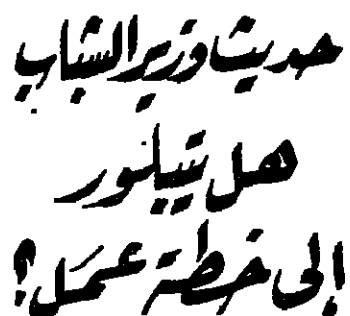 حديث وزير الشباب
هل يتبلور
إلى خطة عمل؟